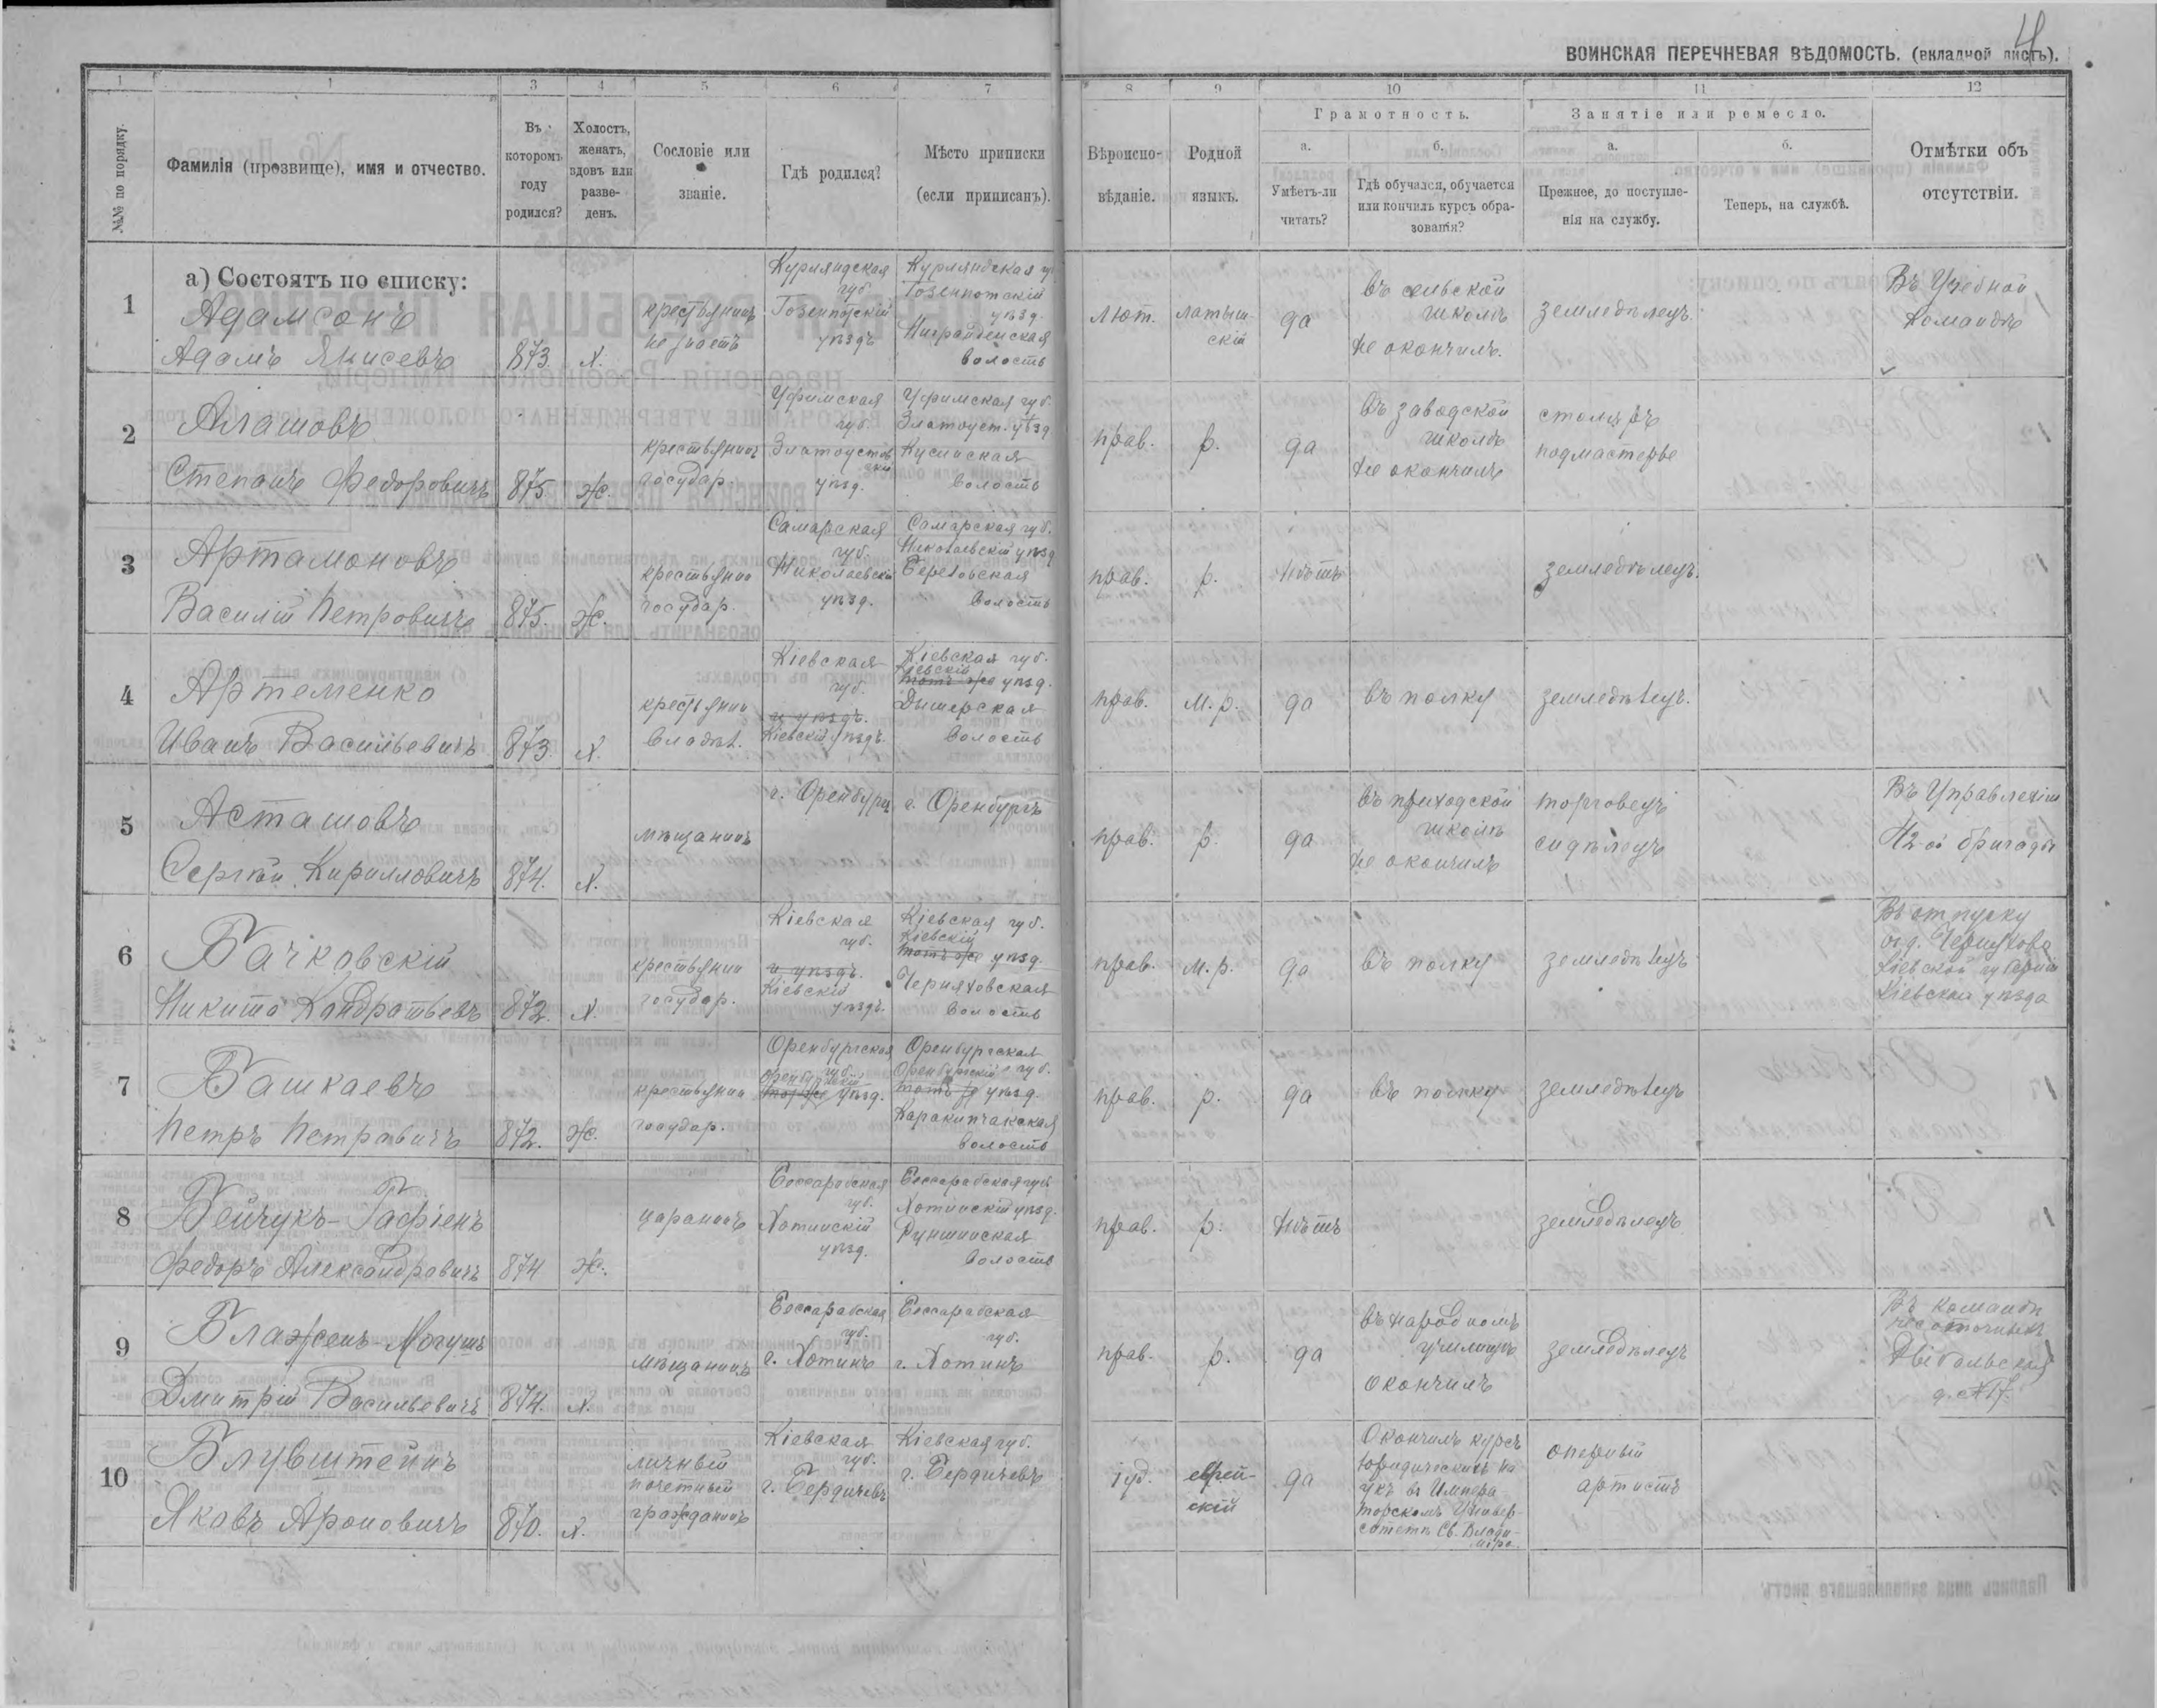 4
ВОИНСКАЯ ПЕРЕЧНЕВАЯ ВѢДОМОСТЬ. (вкладной листъ).
1 1 3 4 5 6 7 8 9 10 11 12
№№ по порядку.
Фамилія (прозвище), имя и отчество.
Въ которомъ году родился?
Холостъ, женатъ, вдовъ или разведенъ.
Сословіе или званіе.
Гдѣ родился?
Мѣсто приписки (если приписанъ).
Вѣроисповѣданіе.
Родной языкъ.
Грамотность.
а. Умѣетъ-ли читать?
б. Гдѣ обучался, обучается или кончилъ курсъ образованія?
Занятіе или ремесло.
а. Прежнее, до поступленія на службу.
б. Теперь, на службѣ.
Отмѣтки объ отсутствіи.
а) Состоятъ по списку:
1
Адамсонъ
Адамъ Янисевъ
873.
х.
крестьянинъ
Курляндская
губ.
Газенпотскій
уѣздъ
Курляндская
Газенпотскій
уѣзд.
волость
Лют.
латыш-
скій
да
въ сельской
школѣ
не окончилъ.
земледѣлецъ.
Въ Учебной
Командѣ
2
Алашовъ
Степанъ Федоровичъ
875
ж.
крестьянинъ
государ.
Уфимская
губ.
Златоустов
ский
уѣзд.
Уфимская губ.
Златоуст. уѣзд
Кусинская
волость
прав.
р.
да
въ заводской
школѣ
не окончилъ
столяръ
подмастерье
3
Артамоновъ
Василій Петровичъ
875.
ж.
крестьянин
государ.
Самарская
губ.
Николаевскій
уѣзд.
Самарская губ.
Николаевскій уѣзд
волость
прав.
р.
нѣтъ
земледѣлецъ.
4
Артеменко
Иванъ Васильевичъ
873.
х.
крестьянин
владѣл.
Кіевская
губ.
и уѣздъ.
Кіевскій уѣздъ.
Кіевская губ.
Кіевскій
тотъ же уѣзд.
Дымерская
волость
прав.
м. р.
да
въ полку
земледѣлецъ.
5
Асташовъ
Сергѣй Кирилловичъ
874.
х.
мѣщанинъ
г. Оренбургъ
г. Оренбургъ
прав.
р.
да
въ приходской
школѣ
не окончилъ
торговецъ
сидѣлецъ
Въ Управленіи
42-ой бригады
6
Бачковскій
Никита Кондратьевъ
872.
х.
крестьянин
государ.
Кіевская
губ.
и уѣздъ.
Кіевскій
уѣздъ.
Кіевская губ.
Кіевскій
тотъ же уѣзд.
Черняховская
волость
прав.
м. р.
да
въ полку
земледѣлецъ
Въ отпуску
Кіевской губерніи
Кіевскій уѣзда
7
Башкаевъ
Петръ Петровичъ
872.
ж.
крестьянин
государ.
Оренбургская
губ.
Оренбургскій
уѣзд.
Оренбургская
губ.
Оренбургскій
уѣзд.
Каракипчакская
волость
прав.
р.
да
въ полку
земледѣлецъ
8
Бейчукъ-Гафіенъ
Федоръ Александровичъ
874
ж.
царанинъ
Бессарабская
губ.
Хотинскій
уѣзд.
Бессарабская губ
Хотинскій уѣзд.
волость
прав.
р.
нѣтъ
земледѣлецъ
9
Блажень-Могушъ
Дмитрій Васильевичъ
874.
х.
мѣщанинъ
Бессарабская
губ.
г. Хотинъ
Бессарабская
губ.
г. Хотинъ
прав.
р.
да
въ народномъ
училищѣ
окончилъ
земледѣлецъ
Въ команди
10
Блувштейнъ
Яковъ Ароновичъ
870.
х.
личный
почетный
гражданинъ
Кіевская
губ.
г. Бердичевъ
Кіевская губ.
г. Бердичевъ
іуд.
еврей-
скій
да
Окончилъ курсъ
юридическихъ на
укъ въ Импера
торскомъ Универ-
ситетѣ Св. Влади-
міра.
оперный
артистъ